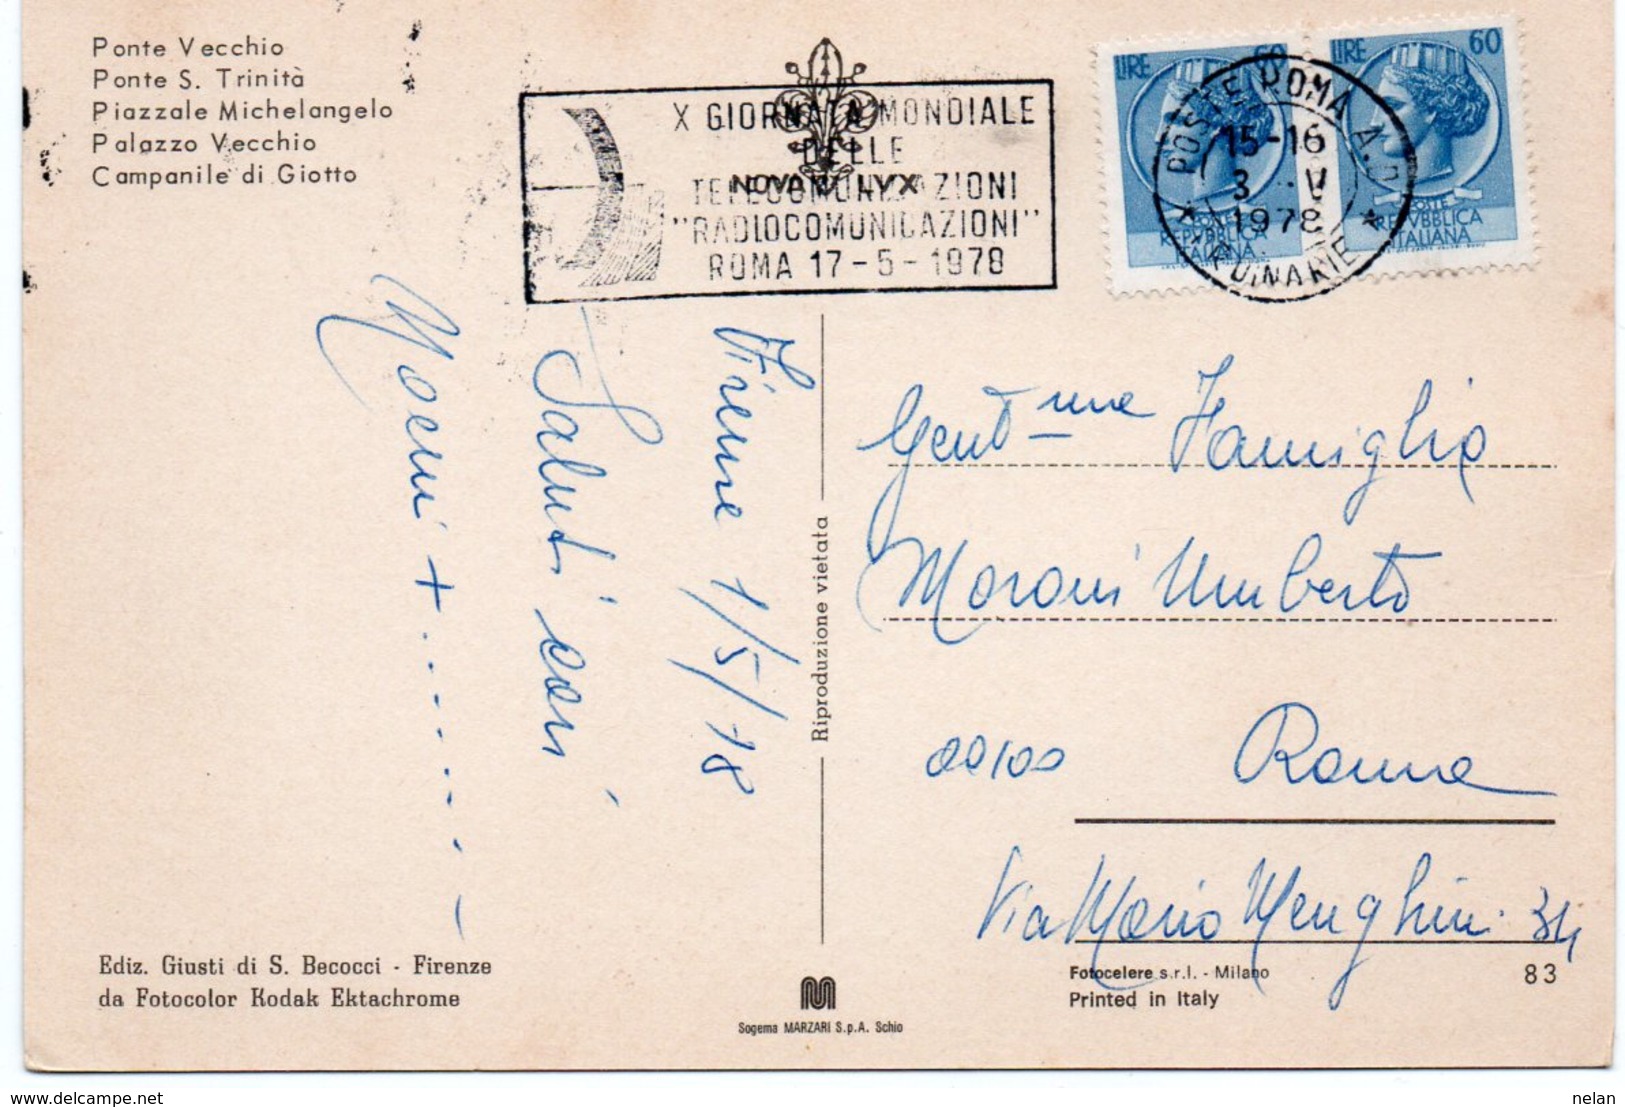 Ponte Vecchio
Ponte S. Trinità
Piazzale Michelangelo
Palazzo Vecchio
Campanile di Giotto
X GIORNATA MONDIALE
DELLE
TELECOMUNICAZIONI
"RADIOCOMUNICAZIONI"
ROMA 17-5-1978
NOVA LUX
LIRE 60
POSTE
REPVBBLICA
ITALIANA
LIRE 60
POSTE
REPVBBLICA
ITALIANA
POSTE ROMA A.D.
15-16
3 V
1978
ORDINARIE
Firenze 1/5/78
Saluti cari
Noemi + .......
Riproduzione vietata
Gent.me Famiglia
Moroni Umberto
00100 Roma
Via Mario Menghini 34
Ediz. Giusti di S. Becocci - Firenze
da Fotocolor Kodak Ektachrome
Sogema MARZARI S.p.A. Schio
Fotocelere s.r.l. - Milano
Printed in Italy
83
delcampe.net
nelan